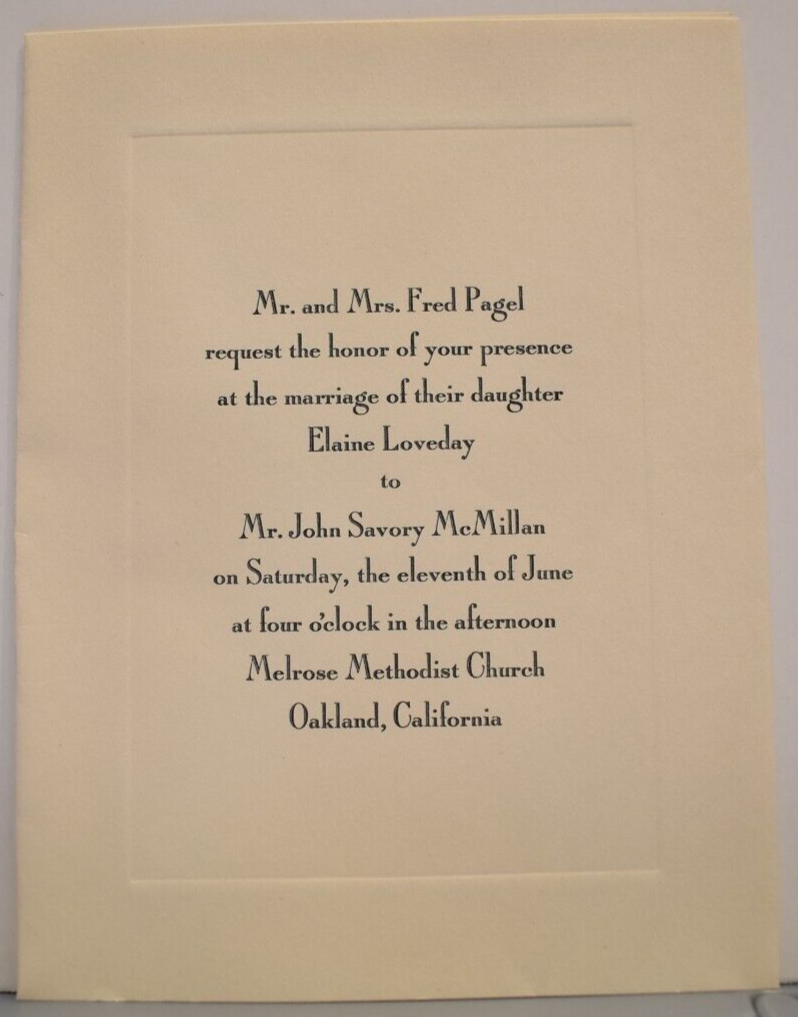 Mr. and Mrs. Fred Pagel
request the honor of your presence
at the marriage of their daughter
Elaine Loveday
to
Mr. John Savory McMillan
on Saturday, the eleventh of June
at four o'clock in the afternoon
Melrose Methodist Church
Oakland, California